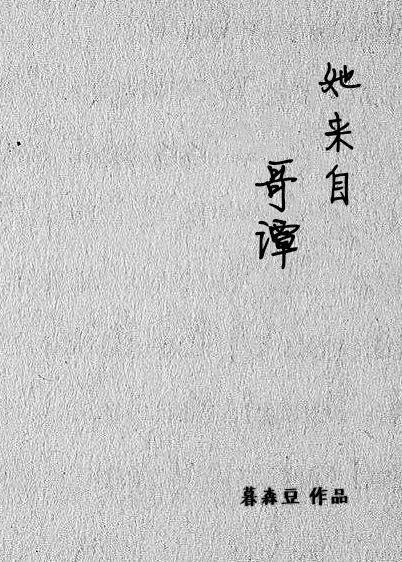 她来自
哥谭
暮森豆 作品